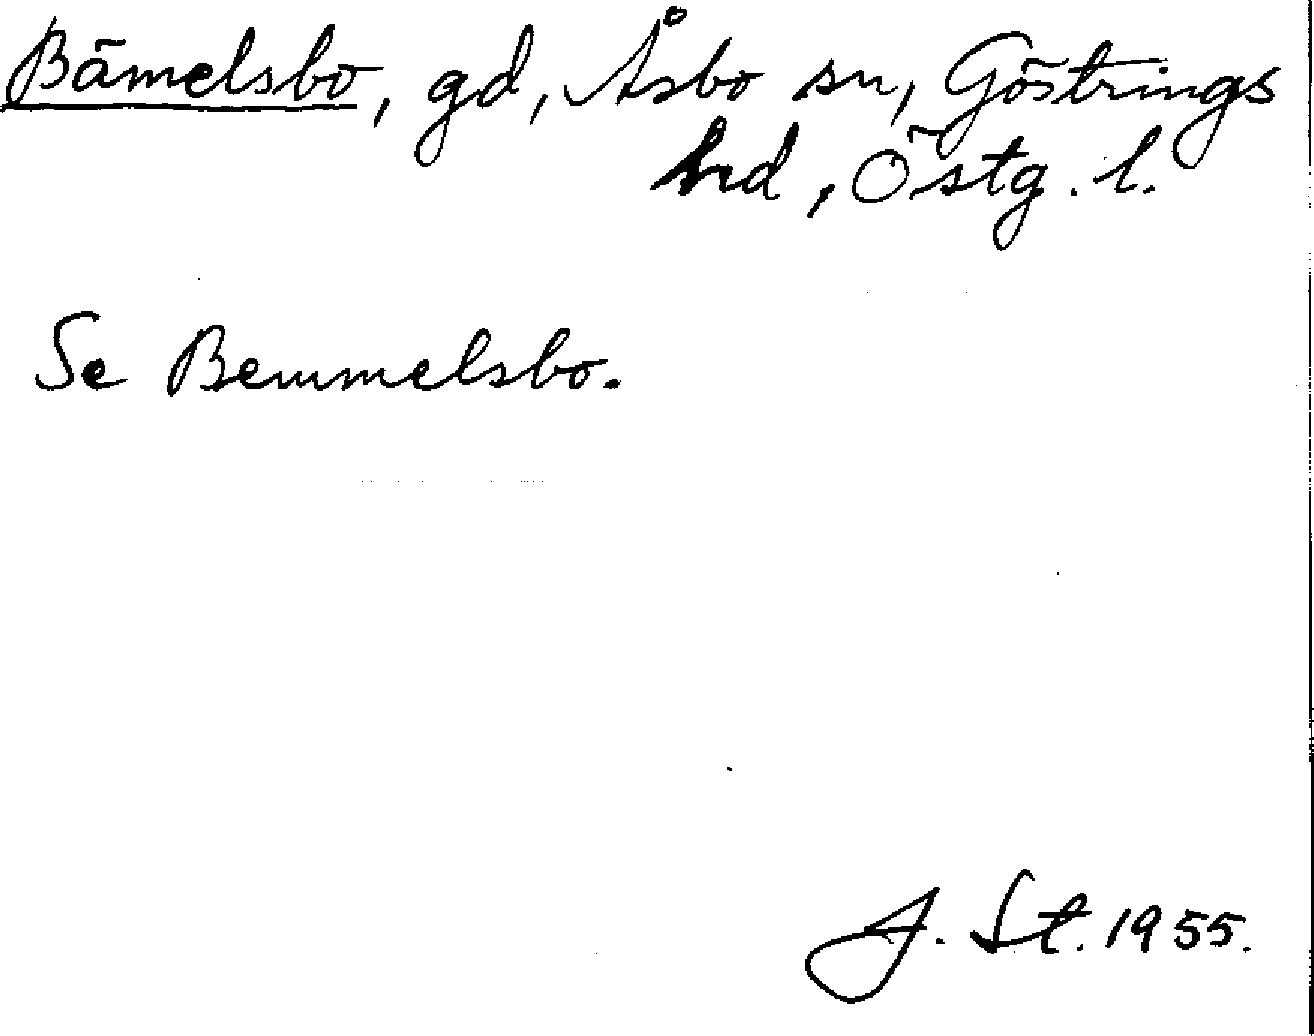 Bämelsbo, gd, Åsbo sn, Göstrings
hrd, Östg. l.
Se Bemmelsbo.
J. St. 1955.